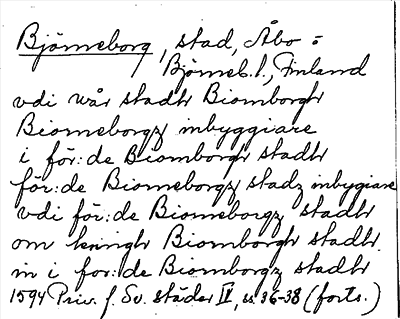 Björneborg, stad, Åbo o
Björneb. l., Finland
vdi wår stadtt Biomborgh
Biomeborgz inbyggiare
i för:de Biomborgh stadtt
för:de Biomeborgz stadz inbygiare
vdi för:de Biomeborgz stadtt
om kringh Biomborgh stadtt
in i for:de Biomborgz stadtt
1594 Priv. f. Sv. städer IV, s. 36-38 (forts.)